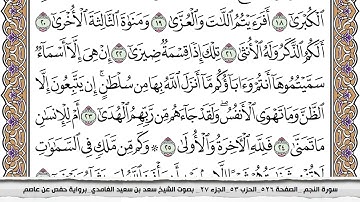 ٱلْكُبْرَىٰٓ ١٨ أَفَرَءَيْتُمُ ٱللَّٰتَ وَٱلْعُزَّىٰ ١٩ وَمَنَوٰةَ ٱلثَّالِثَةَ ٱلْأُخْرَىٰٓ ٢٠
أَلَكُمُ ٱلذَّكَرُ وَلَهُ ٱلْأُنثَىٰ ٢١ تِلْكَ إِذًا قِسْمَةٌ ضِيزَىٰٓ ٢٢ إِنْ هِىَ إِلَّآ أَسْمَآءٌ
سَمَّيْتُمُوهَآ أَنتُمْ وَءَابَآؤُكُم مَّآ أَنزَلَ ٱللَّهُ بِهَا مِن سُلْطَٰنٍ ۚ إِن يَتَّبِعُونَ إِلَّا
ٱلظَّنَّ وَمَا تَهْوَى ٱلْأَنفُسُ ۖ وَلَقَدْ جَآءَهُم مِّن رَّبِّهِمُ ٱلْهُدَىٰٓ ٢٣ أَمْ لِلْإِنسَٰنِ
مَا تَمَنَّىٰ ٢٤ فَلِلَّهِ ٱلْءَاخِرَةُ وَٱلْأُولَىٰ ٢٥ وَكَم مِّن مَّلَكٍ فِى ٱلسَّمَٰوَٰتِ
سورة النجم _ الصفحة ٥٢٦_ الحزب ٥٣_ الجزء ٢٧ _ بصوت الشيخ سعد بن سعيد الغامدي _برواية حفص عن عاصم